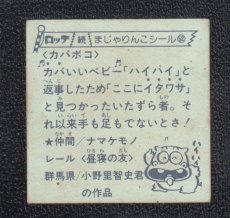 ロッテ 続 まじゃりんこシール
〈カバポコ〉
カバいいベビー「ハイハイ」と
返事したため「ここにイタワサ」
と見つかったいたずら者。そ
れ以来手も足もでないとさ!
★仲間/ナマケモノ
レール〈昼寝の友〉
群馬県/小野里智史君
の作品